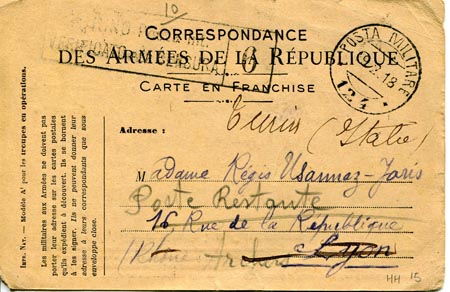 10
CORRESPONDANCE
DES ARMÉES DE LA RÉPUBLIQUE
CARTE EN FRANCHISE
CENSURA
6
POSTA MILITARE
.2.18
124
Turin (Italie)
Adresse :
Madame Régis
Poste Restante
16, Rue de la République
(Rhône) Lyon
IMP. NAT. — Modèle A¹ pour les troupes en opérations.
Les militaires aux Armées ne doivent pas
porter leur adresse sur les cartes postales
qu'ils expédient à découvert. Ils se bornent
à les signer. Ils ne peuvent donner leur
adresse à leurs correspondants que sous
enveloppe close.
HH 15